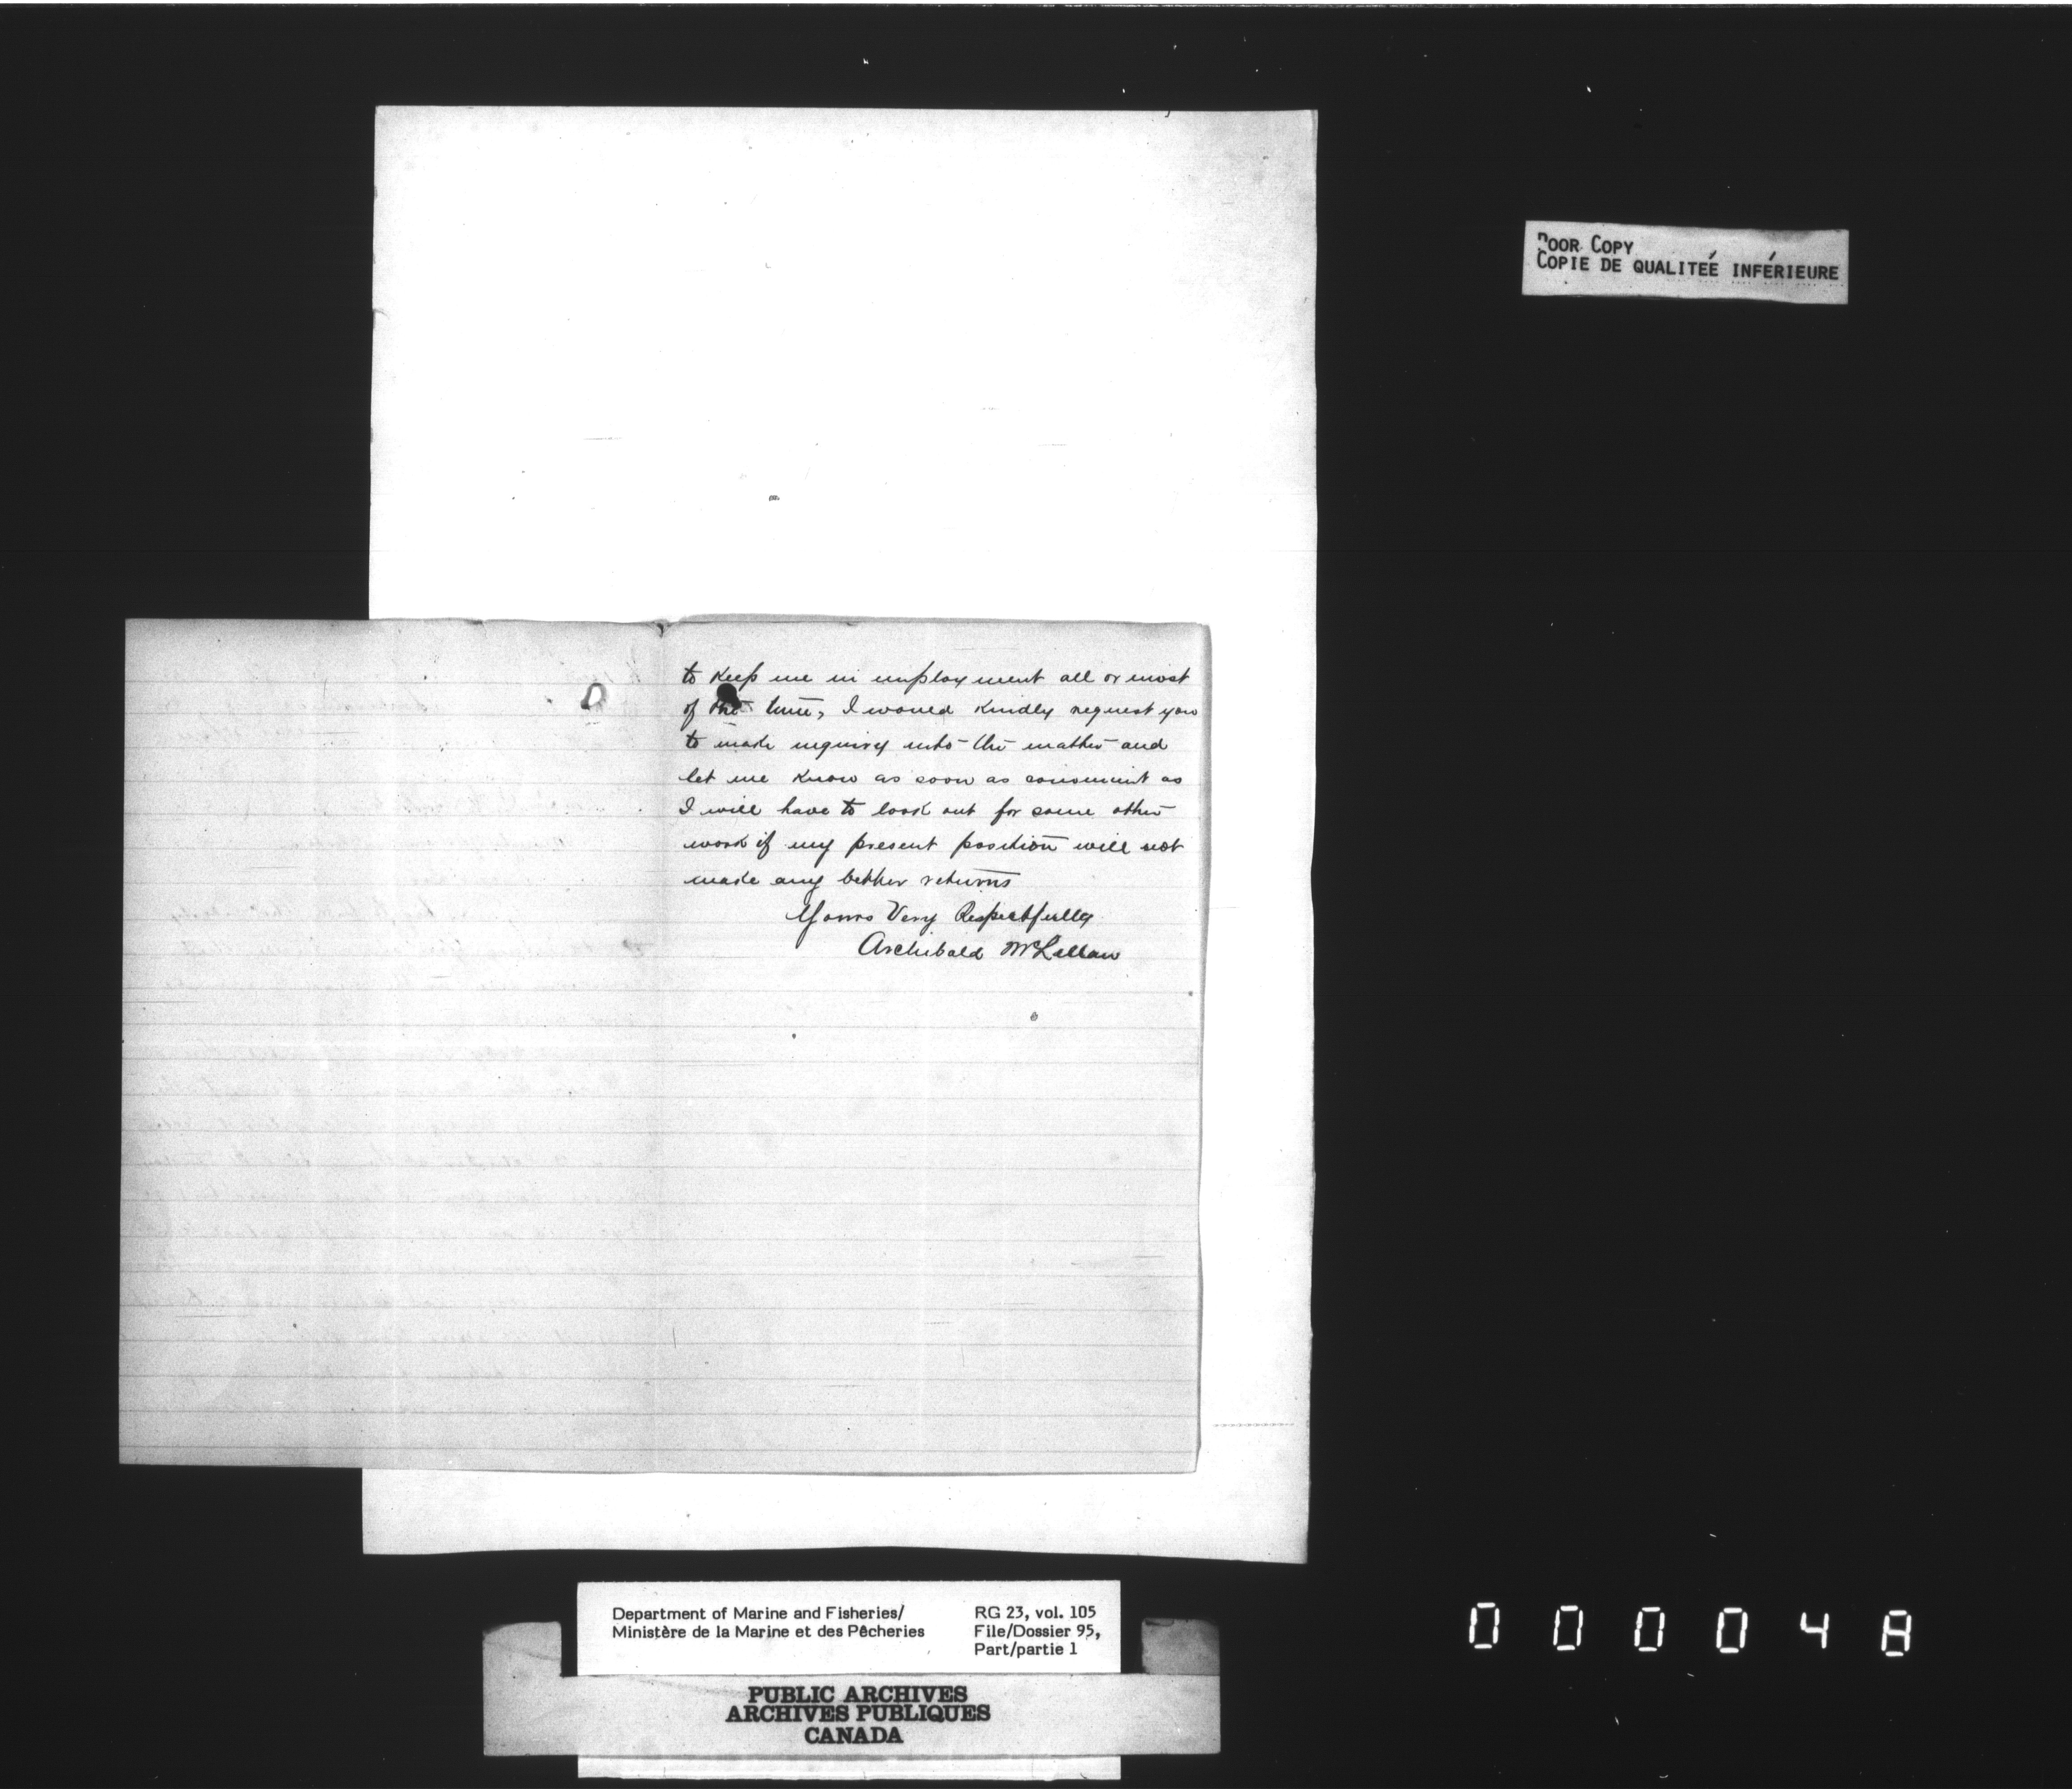 Poor Copy
Copie de qualiteé inférieure
to keep me in employment all or most
of the time, I would kindly request you
to make inquiry into the matter and
let me know as soon as convenient as
I will have to look out for some other
work if my present position will not
make any better returns
Yours Very Respectfully
Archibald McLellan
Department of Marine and Fisheries/
Ministère de la Marine et des Pêcheries
RG 23, vol. 105
File/Dossier 95,
Part/partie 1
PUBLIC ARCHIVES
ARCHIVES PUBLIQUES
CANADA
000048